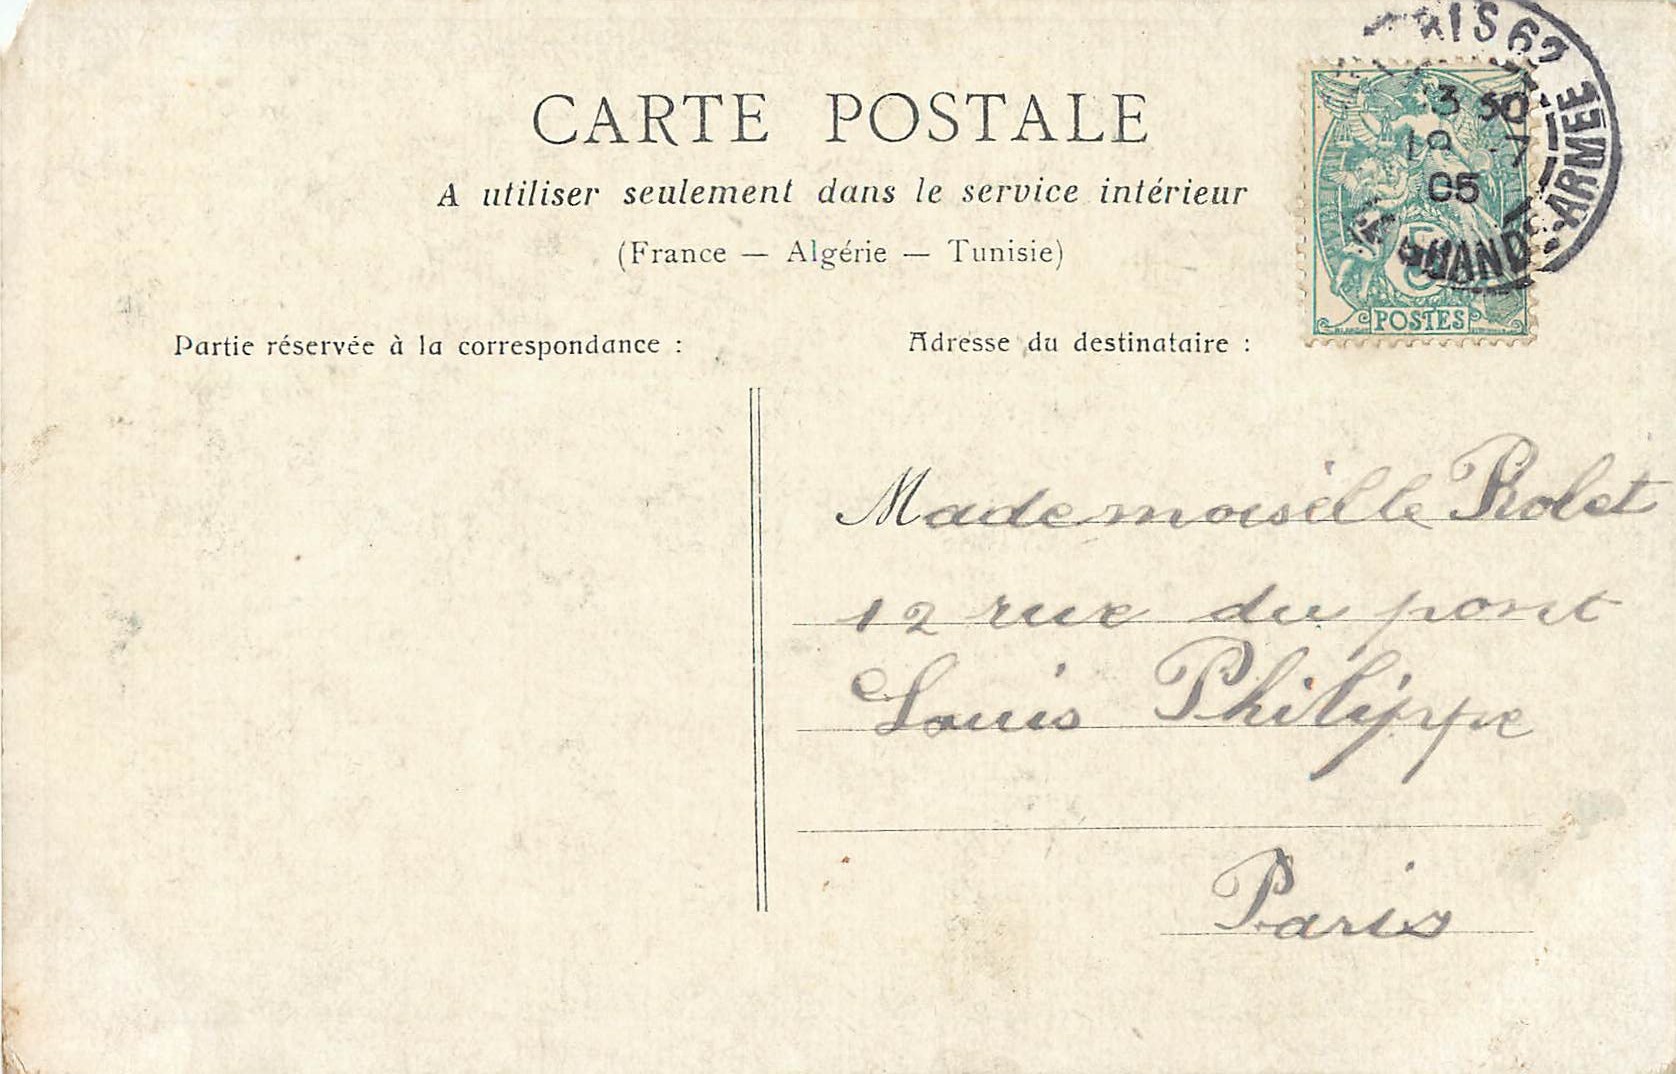 CARTE POSTALE
A utiliser seulement dans le service intérieur
(France — Algérie — Tunisie)
Partie réservée à la correspondance :
Adresse du destinataire :
62
3 30
05
GRANDE-ARMEE
5
POSTES
Mademoiselle Rolet
12 rue du pont
Louis Philippe
Paris